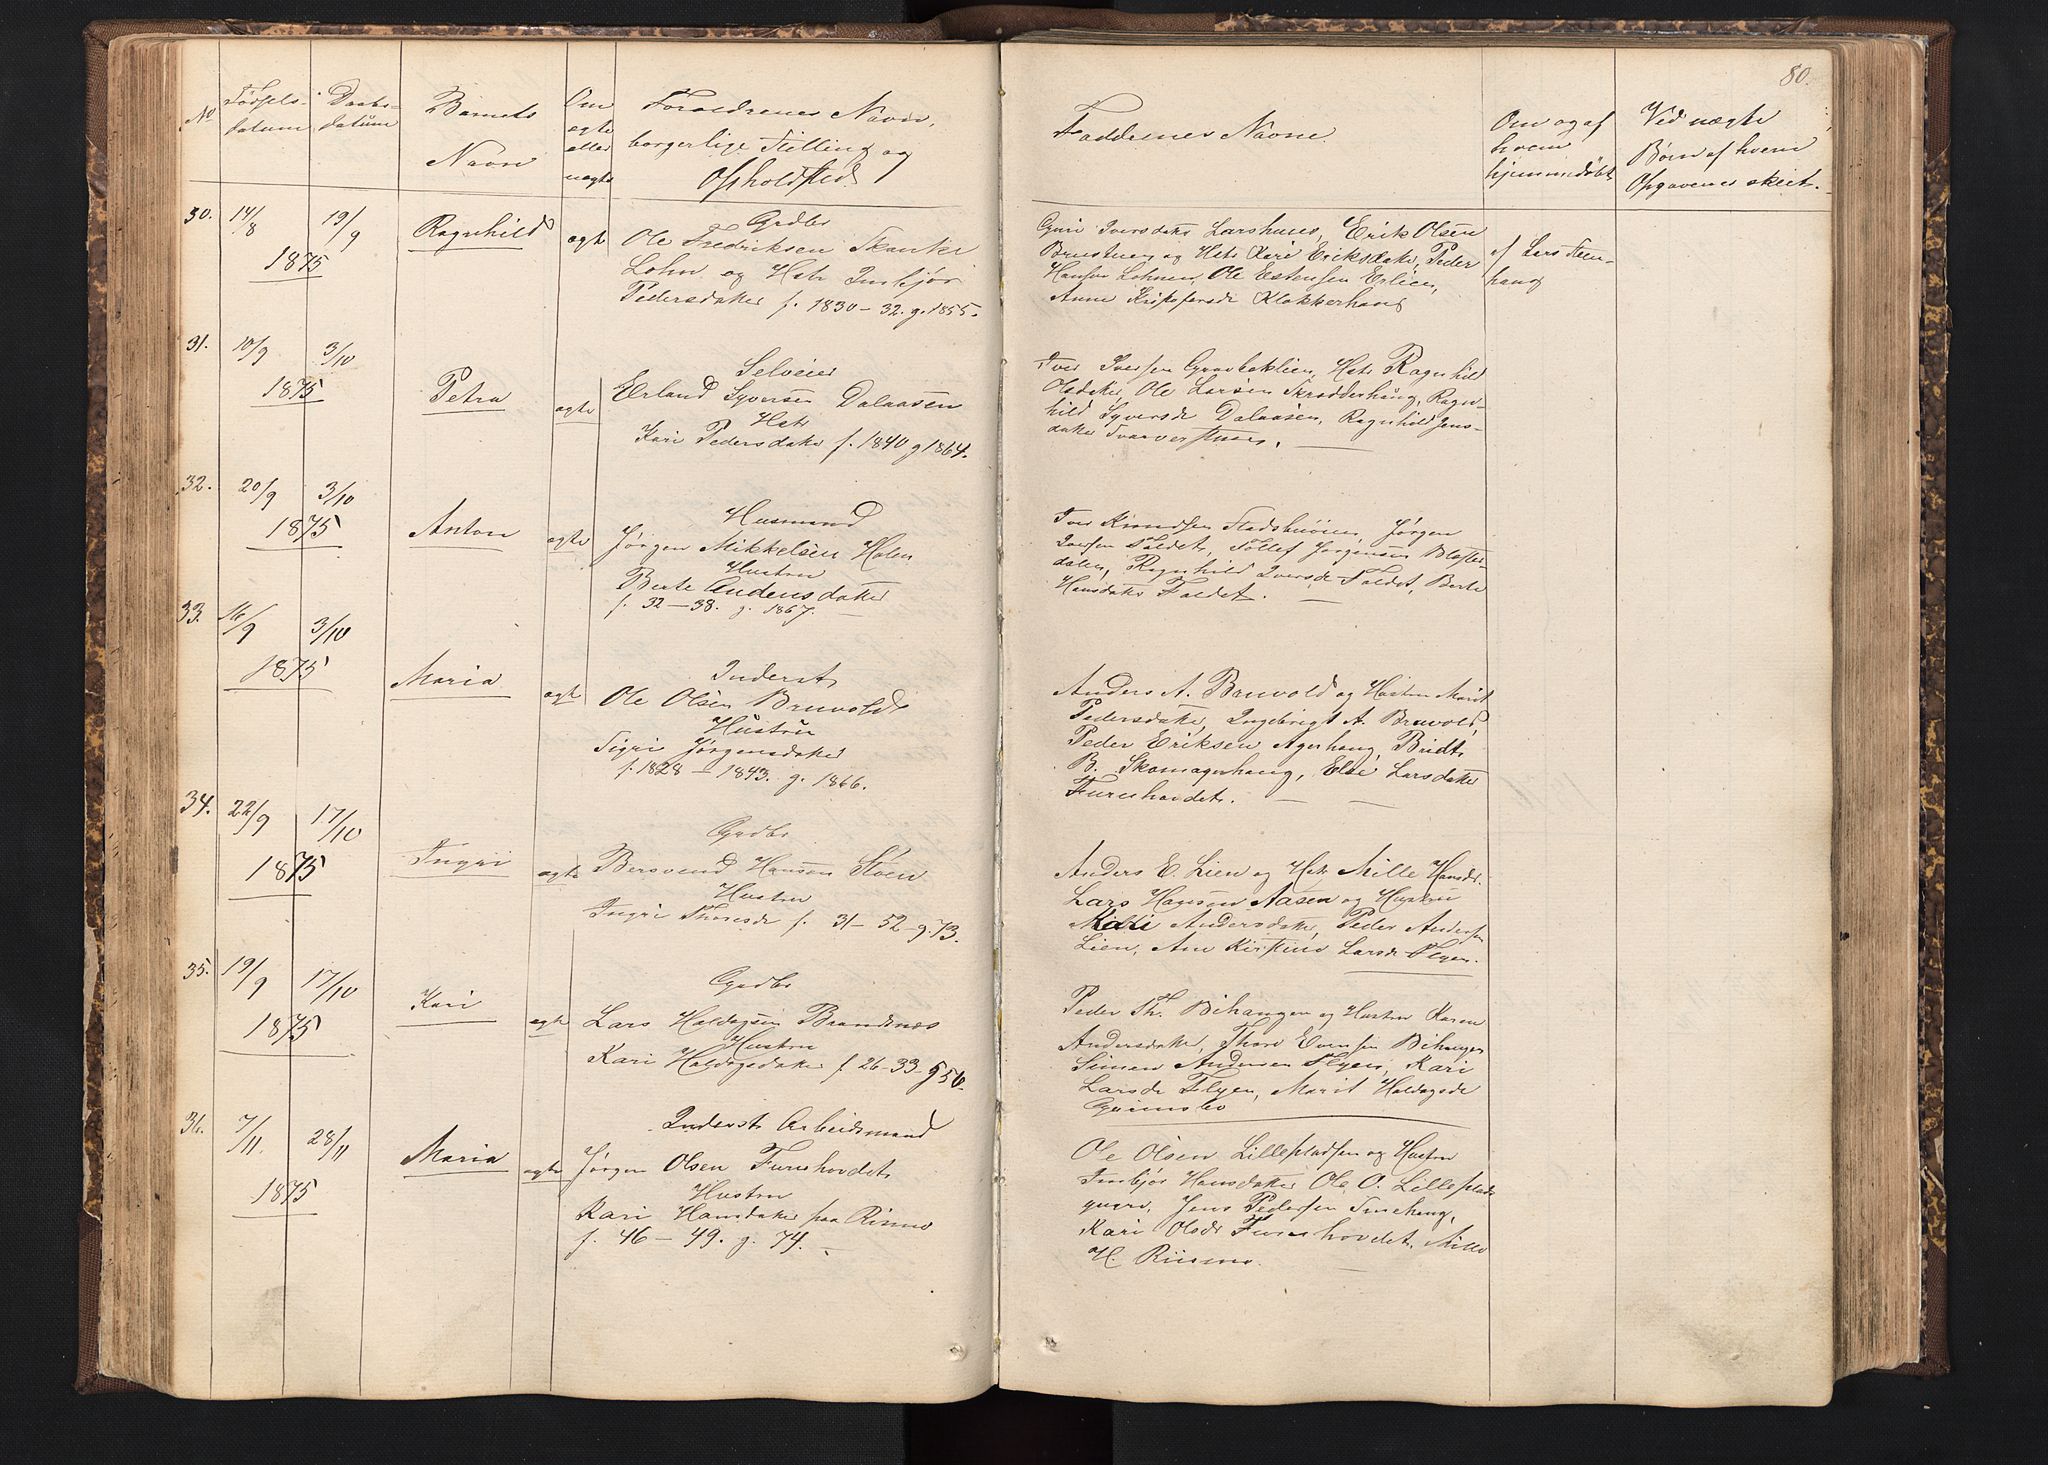 80.
No
Fødsels-
datum
Daabs-
datum
Barnets
Navn
Om
ægte
eller
uægte
Forældrenes Navn,
borgerlige Stilling og
Opholdsted
Faddernes Navne.
Om og af
hvem
hjemmedøbt
Ved uægte
Børn af hvem
Opgavenes skeet.
30. 14/8 19/9
1875
Ragnhild
ægte
Grdbr
Ole Fredriksen Skanke
Lohn og Hstr Imbjør
Pedersdatter f. 1830 – 32. g. 1855.
Guri Iversdatr Larshuus, Erik Olsen
og Hstr Kari Eriksdatr, Peder
Hansen Lohnen, Ole Estensen Erlien,
Anne Klokkerhaug
af Lars Steen-
haug
31. 10/9 3/10
1875
Petra
ægte
Selveier
Erland Syversen Dalaasen
Hstr
Kari Pedersdatr f. 1840 g 1864.
Iver Iversen Gravbeklien, Hstr Ragnhild
Olsdatr, Ole Larsen Skradderhaug, Ragn-
hild Syversdr Dalaasen, Ragnhild Jens-
datr
32. 20/9 3/10
1875
Anton
ægte
Husmand
Jørgen Mikkelsen Holen
Hustru
Berte Andersdatter
f. 32 – 38. g. 1867.
Iver Knudsen Jørgen
Iversen Foldet, Tollef Jørgensen Bloster-
dalen, Ragnhild Iversdr Foldet, Berte
Hansdatr Foldet.
33. 16/9 3/10
1875
Maria
ægte
Inderst
Ole Olsen Bruvold
Hustru
Sigri Jørgensdatter
f. 1828 – 1843. g. 1866.
Anders A. Bruvold og Hustru Marit
Pedersdatr, Ingebrigt A. Bruvold,
Peder Eriksen Agerhaug, Bridt
B. Skomagerhaug, Else Larsdatter
Furuhovdet.
34. 22/9 17/10
1875
Ingri
ægte
Grdbr
Bersvend Hansen Støen
Hustru
Ingri Thoresdr f. 31 – 52 – g. 73.
Anders E. Lien og Hstr Mille Hansdr.
Lars Hansen Aasen og Hustru
Mari Andersdatr, Peder Andersen
Lien, Ane Kirstine Larsdr Flyen.
35. 19/9 17/10
1875
Kari
ægte
Grdbr
Lars Haldogsen Brandsnæs
Hustru
Kari Haldogsdatter f. 26 – 33 – g 56.
Peder Th. Bihaugen og Hustru Karen
Andersdatter, Thore Evensen Bihaugen
Simen Andersen Flyen, Kari
Larsdr Flyen, Marit Haldogsdr
Grimsbo
36. 7/11 28/11
1875
Maria
ægte
Inderst Arbeidsmand
Jørgen Olsen Furuhovdet
Hustru
Kari Hansdatter paa Rismo
f. 46 – 49. g. 74.
Ole Olsen Lillepladsen og Hustru
Imbjør Hansdatter Ole O. Lilleplads
Jens Pedersen
Kari Olsdr Furuhovdet, Mille
H. Riismo.